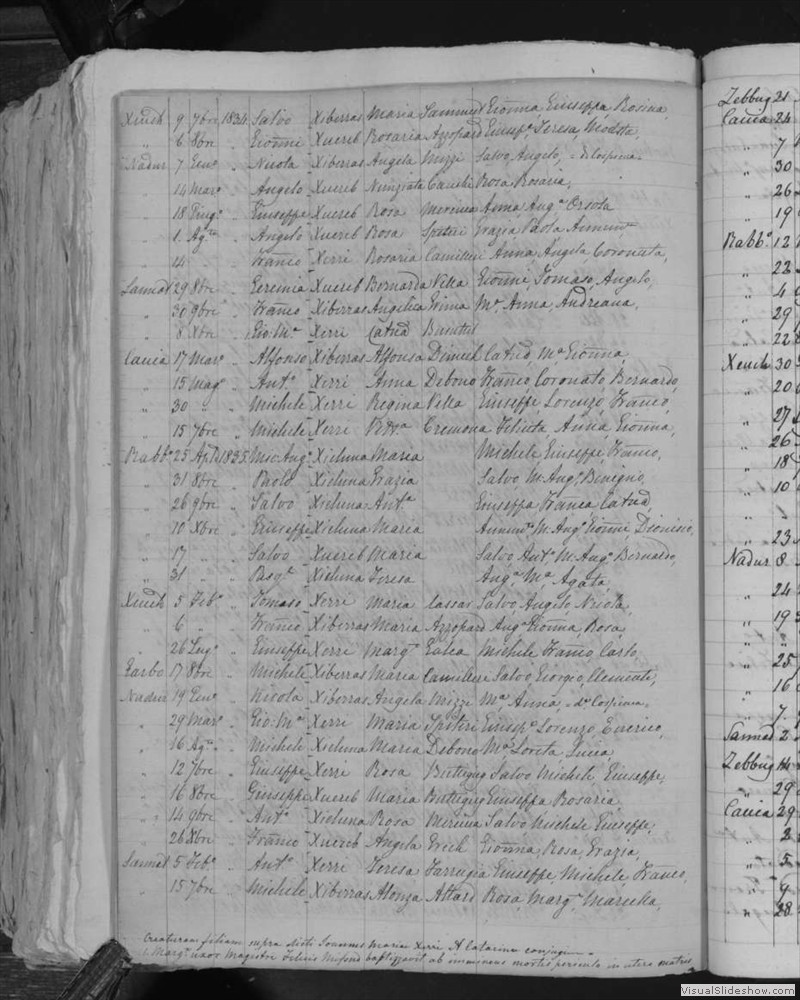 Xeuch 9 7bre 1834 Salvo Xiberras Maria Sammut Gionna, Giuseppa, Rosina,
" 6 8bre " Gionni Xuereb Rosaria Azzopard Giusepe Teresa Modsta,
Nadur 7 Geno " Nicola Xiberras Angela Mizzi Salvo, Angelo, = di Cospicua =
" 14 Maro " Angelo Xuereb Nunziata Rosa, Rosaria,
" 18 Giugo " Giuseppe Xuereb Rosa Anna, Anga Orsola
" 1 Ago " Angelo Xuereb Rosa Spiteri Grazia, Paola
" 14 " Franco Xerri Rosaria Camilleri Anna, Angela Coronata,
Sannat 29 8bre " Geremia Xuereb Bernarda Vella Gionni, Tomaso, Angelo,
" 30 9bre " Franco Xiberras Angelica Grima Ma Anna, Andreana,
" 8 Xbre " Gio: Ma Xerri Catna
Caccia 17 Maro " Alfonso Xiberras Alfonsa Catna, Ma Gionna,
" 15 Mago " Anto Xerri Anna Debono Franco, Coronato, Bernardo,
" 30 " " Michele Xerri Regina Vella Giuseppe, Lorenzo, Franco,
" 15 7bre " Michele Xerri Cremona Felicita, Anna, Gionna,
Rabbo 25 Aple 1835 Mic: Ango Xicluna Maria Michele Giuseppe, Franco,
" 31 8bre " Paolo Xicluna Grazia Salvo, M: Ango, Benigno,
" 26 9bre " Salvo Xicluna Anta Giuseppa Franca, Catna,
" 10 Xbre " Giuseppe Xicluna Maria M: Ango, Gionni, Dionisio,
" 17 " " Salvo Xuereb Maria Salvo Anto M: Ango, Bernardo,
" 31 " " Pasqle Xicluna Teresa Anga, Ma Agata
Xeuch 5 Febo " Tomaso Xerri Maria Cassar Salvo, Angelo, Nicola,
" 6 " " Franco Xiberras Maria Azzopard Anga Gionna, Rosa,
" 26 Lugo " Giuseppe Xerri Marga Galea Michele Franco, Carlo,
Garbo 17 8bre " Michele Xiberras Maria Camilleri Salvo, Giorgio, Clemente,
Nadur 19 Geno " Nicola Xiberras Angela Mizzi Ma Anna, = do Cospicua =
" 29 Maro " Gio: Ma Xerri Maria Spiteri Giusepe Lorenzo,
" 16 Ago " Michele Xicluna Maria Debono Ma Loreta, Lucia
" 12 7bre " Giuseppe Xerri Rosa Buttigieg Salvo, Michele, Giuseppe,
" 16 8bre " Giuseppe Xuereb Maria Buttigieg Giuseppa, Rosaria,
" 14 9bre " Anto Xicluna Rosa Salvo, Michele, Giuseppe,
" 26 Xbre " Franco Xuereb Angela Grech Gionna, Rosa, Grazia,
Sannat 5 Febo " Anto Xerri Teresa Farrugia Giuseppe, Michele, Franco,
" 15 7bre " Michele Xiberras Attard Rosa, Marga, Marcella,
Creaturam filiam supra dicti Joannis Maria Xerri et Catarina conjugum
Marga uxor Magistri Felicis Mifsud baptizzavit ob imminens mortis periculo in utero matris
Zebbug 21
Caccia 24
" 7
" 30
" 26
" 19
Rabbo 12
" 22
" 4
" 29
" 22
Xeuch 30
" 20
" 27
" 26
" 18
" 10
"
" 23
Nadur 8
" 24
" 19
"
" 25
" 16
" 7
Sannat 2
Zebbug 14
" 29
Caccia 29
" 2
" 5
" 9
" 28
VisualSlideshow.com